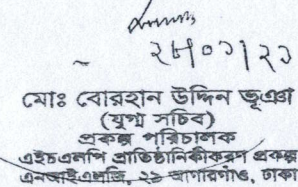 ২৮/০১/২১
মোঃ বোরহান উদ্দিন ভূঞা
(যুগ্ম সচিব)
প্রকল্প পরিচালক
এইচএলপি প্রাতিষ্ঠানিকীকরণ প্রকল্প
এনআইএলজি, ২৯ আগারগাঁও, ঢাকা